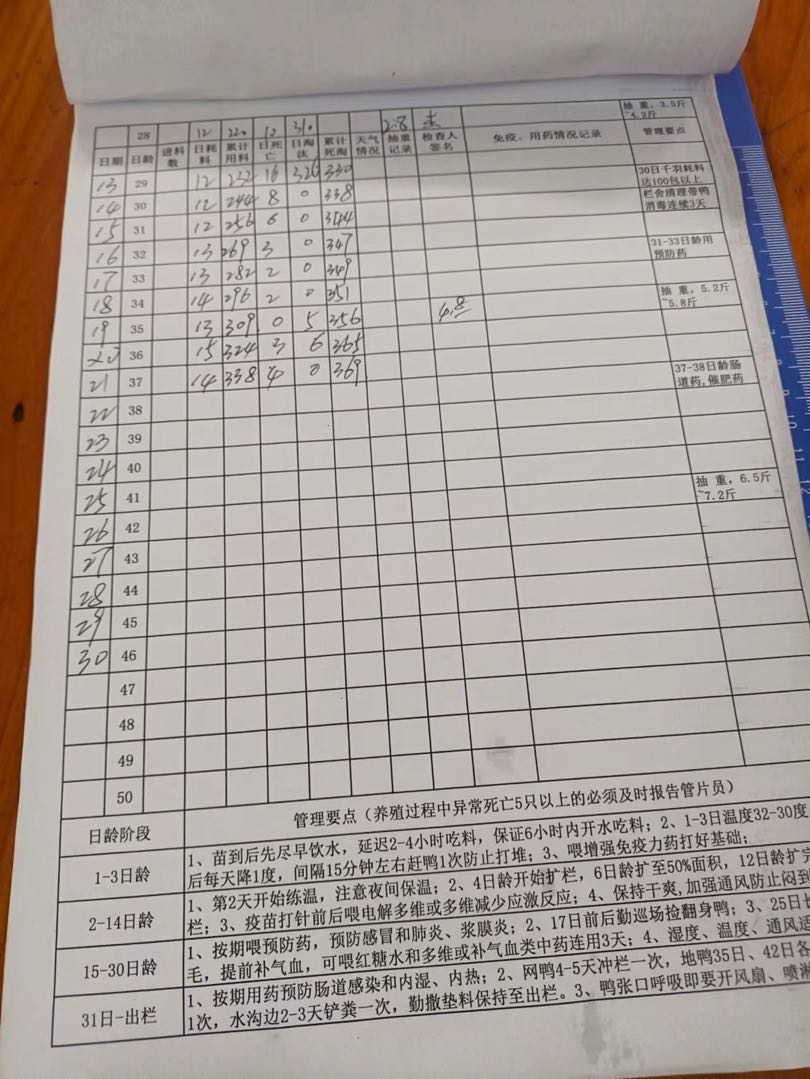 28 12 220 12 310 2.8 抽 重，3.5斤~4.2斤
日期 日龄 进料数 日耗料 累计用料 日死亡 日淘汰 累计死淘 天气情况 抽重记录 检查人签名 免疫、用药情况记录 管理要点
13 29 12 232 16 326 330 30日千羽耗料达100包以上
14 30 12 244 8 0 338 栏舍清理带鸭消毒连续3天
15 31 12 256 6 0 344
16 32 13 269 3 0 347 31-33日龄用预防药
17 33 13 282 2 0 349
18 34 14 296 2 0 351 抽 重，5.2斤~5.8斤
19 35 13 309 0 5 356 4.8
20 36 15 324 3 6 365
21 37 14 338 4 0 369 37-38日龄肠道药,催肥药
22 38
23 39
24 40
25 41 抽 重，6.5斤~7.2斤
26 42
27 43
28 44
29 45
30 46
47
48
49
50
日龄阶段 管理要点（养殖过程中异常死亡5只以上的必须及时报告管片员）
1-3日龄 1、苗到后先尽早饮水，延迟2-4小时吃料，保证6小时内开水吃料；2、1-3日温度32-30度
后每天降1度，间隔15分钟左右赶鸭1次防止打堆；3、喂增强免疫力药打好基础；
2-14日龄 1、第2天开始练温，注意夜间保温；2、4日龄开始扩栏，6日龄扩至50%面积，12日龄扩完
栏；3、疫苗打针前后喂电解多维或多维减少应激反应；4、保持干爽,加强通风防止闷到
15-30日龄 1、按期喂预防药，预防感冒和肺炎、浆膜炎；2、17日前后勤巡场捡翻身鸭；3、25日长
毛，提前补气血，可喂红糖水和多维或补气血类中药连用3天；4、湿度、温度、通风适
31日-出栏 1、按期用药预防肠道感染和内湿、内热；2、网鸭4-5天冲栏一次，地鸭35日、42日各
1次，水沟边2-3天铲粪一次，勤撒垫料保持至出栏。3、鸭张口呼吸即要开风扇、喷淋